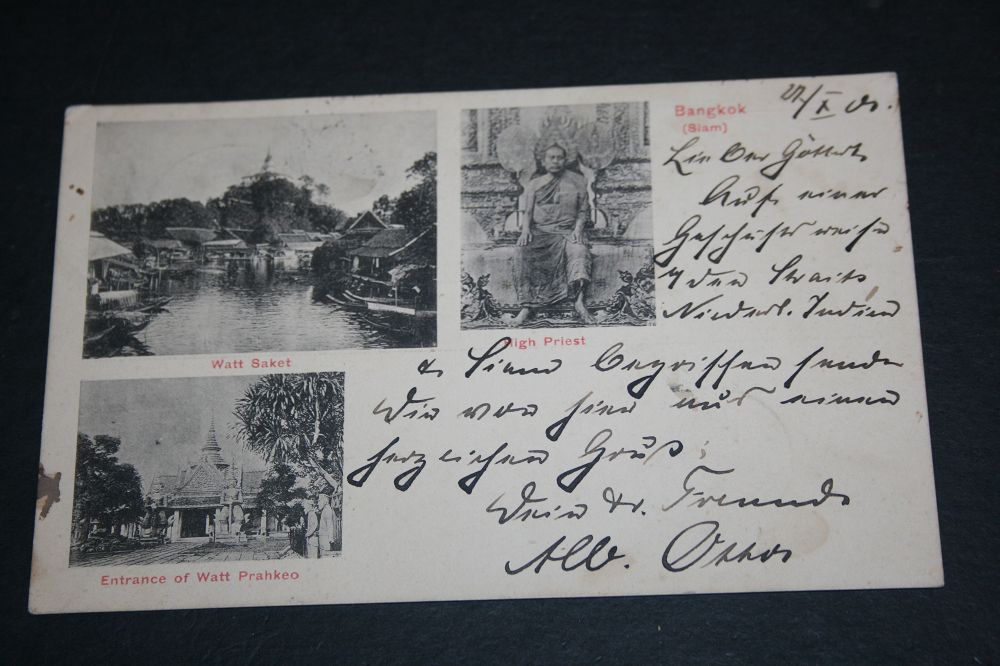 Bangkok
(Siam)
Watt Saket
High Priest
Entrance of Watt Prahkeo
Lieber
Auf einer
Geschäftsreise
den Straits
Niederl. Indien
& Siam begriffen sende
Dir von hier aus einen
herzlichen Gruß
Dein Freund
Alb.